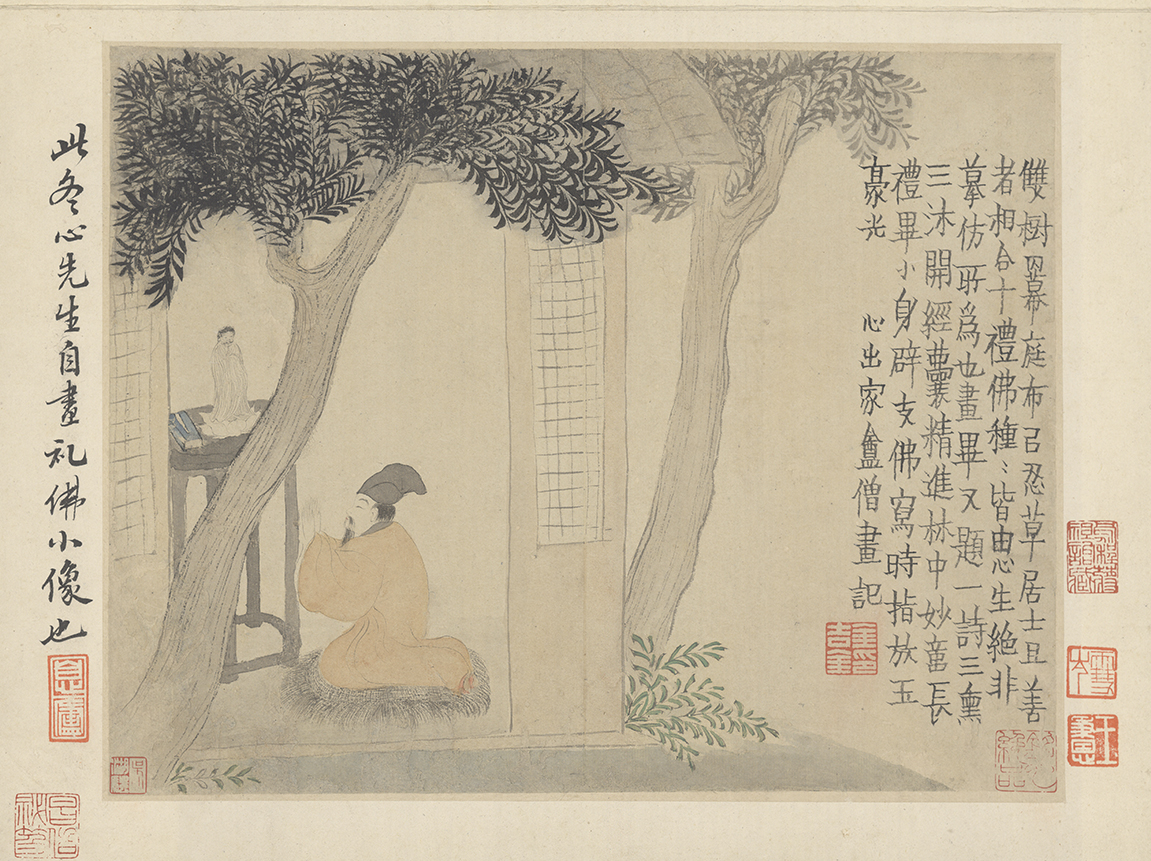 雙樹羃庭布㠯忍草居士且善
者相合十禮佛種〻皆思生絶非
摹仿所爲也畫畢又題一詩三熏
三沐開經囊精進林中妙長
禮畢小身辟支佛寫時指放玉
豪光 心出家盦僧畫記
金吉金印
此冬心先生自畫礼佛小像也